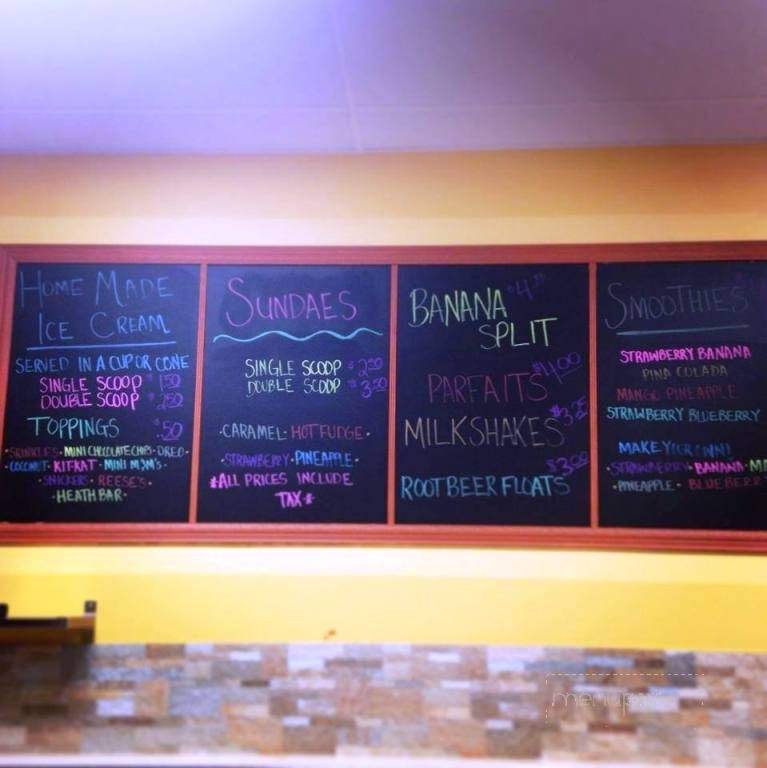 HOME MADE
ICE CREAM
SERVED IN A CUP OR CONE
SINGLE SCOOP $1.50
DOUBLE SCOOP $2.50
TOPPINGS $.50
SPRINKLES • MINI CHOCOLATE CHIPS • OREO
COCONUT • KIT-KAT • MINI M&M'S •
• SNICKERS • REESE'S •
• HEATH BAR •
SUNDAES
SINGLE SCOOP $2.50
DOUBLE SCOOP $3.50
• CARAMEL • HOT FUDGE •
• STRAWBERRY • PINEAPPLE •
*ALL PRICES INCLUDE
TAX*
BANANA
SPLIT
PARFAITS $4.00
MILKSHAKES $3.75
ROOT BEER FLOATS $3.00
SMOOTHIES
STRAWBERRY BANANA
PINA COLADA
MANGO PINEAPPLE
STRAWBERRY BLUEBERRY
MAKE YOUR OWN!
• STRAWBERRY • BANANA •
• PINEAPPLE • BLUEBERR